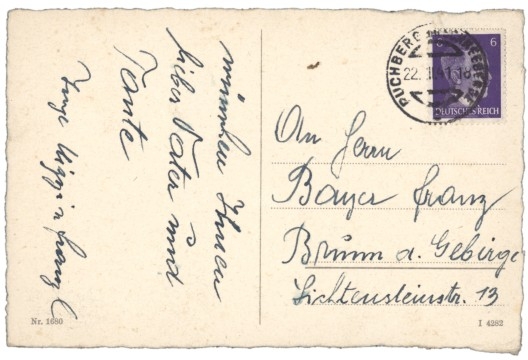 wünschen Ihnen
lieber Vater und
Tante
Franz
6
PUCHBERG
22.
DEUTSCHES REICH
An Herrn
Bayer Franz
Brunn a. Gebirge
Lichtensteinstr. 13
Nr. 1680
I 4282